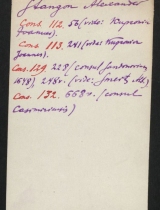 Stangon Alexander
Cons. 112. 56 (vide: Kuprowin
Joannes).
Cons. 113. 241 (vide: Kuprowin
Joannes).
Cons. 129. 228 (consul
1648), 248v. (vide:
Cons. 132. 668v. (consul